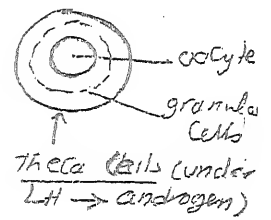 oocyte
granulosa
Cells
Theca Cells (under
LH → androgen)